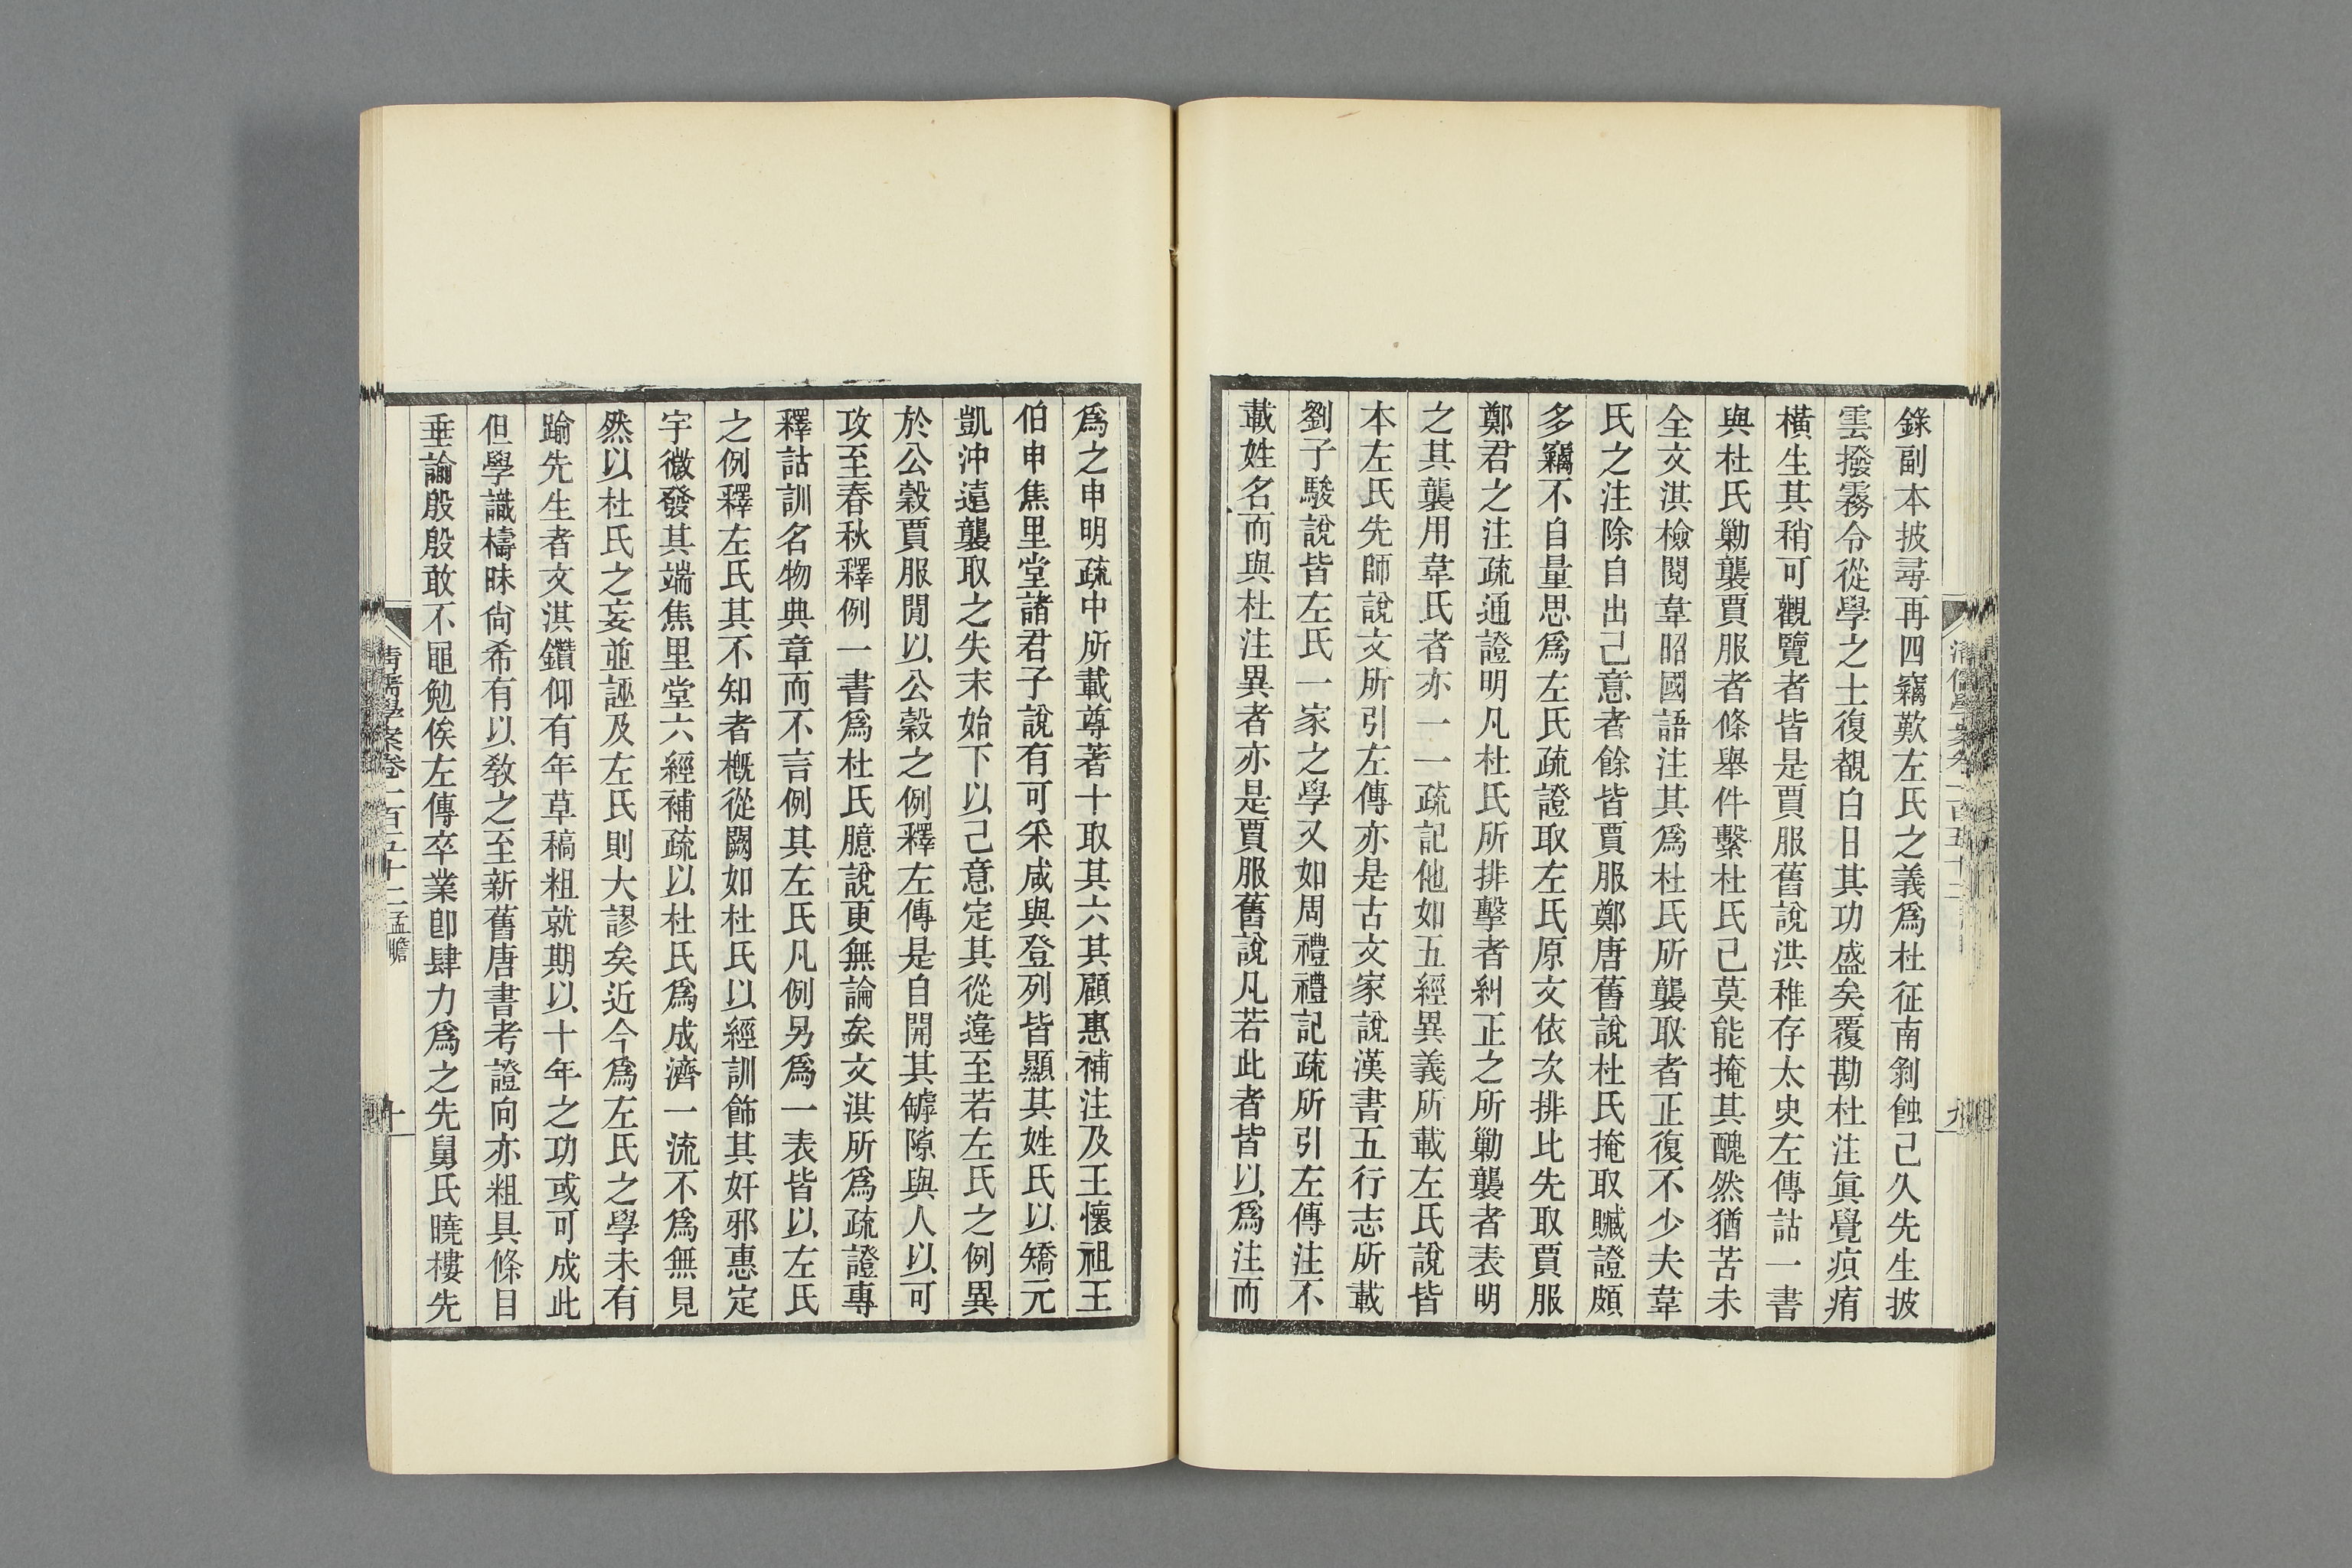 錄副本披尋再四竊歎左氏之義爲杜征南剝蝕已久先生披
雲撥霧令從學之士復覩白日其功盛矣覆勘杜注眞覺疻痏
橫生其稍可觀覽者皆是賈服舊說洪稚存太史左傳詁一書
與杜氏勦襲賈服者條舉件繫杜氏已莫能掩其醜然猶苦未
全文淇檢閱韋昭國語注其爲杜氏所襲取者正復不少夫韋
氏之注除自出己意者餘皆賈服鄭唐舊說杜氏掩取贓證頗
多竊不自量思爲左氏疏證取左氏原文依次排比先取賈服
鄭君之注疏通證明凡杜氏所排擊者糾正之所勦襲者表明
之其襲用韋氏者亦一一疏記他如五經異義所載左氏說皆
本左氏先師說文所引左傳亦是古文家說漢書五行志所載
劉子駿說皆左氏一家之學又如周禮禮記疏所引左傳注不
載姓名而與杜注異者亦是賈服舊說凡若此者皆以爲注而
爲之申明疏中所載尊著十取其六其顧惠補注及王懷祖王
伯申焦里堂諸君子說有可采咸與登列皆顯其姓氏以矯元
凱沖遠襲取之失末始下以己意定其從違至若左氏之例異
於公穀賈服閒以公穀之例釋左傳是自開其罅隙與人以可
攻至春秋釋例一書爲杜氏臆說更無論矣文淇所爲疏證專
釋詁訓名物典章而不言例其左氏凡例另爲一表皆以左氏
之例釋左氏其不知者概從闕如杜氏以經訓飾其奸邪惠定
宇微發其端焦里堂六經補疏以杜氏爲成濟一流不爲無見
然以杜氏之妄並誣及左氏則大謬矣近今爲左氏之學未有
踰先生者文淇鑽仰有年草稿粗就期以十年之功或可成此
但學識檮昧尙希有以敎之至新舊唐書考證向亦粗具條目
垂諭殷殷敢不黽勉俟左傳卒業卽肆力爲之先舅氏曉樓先
清儒學案卷一百五十二 孟瞻
十